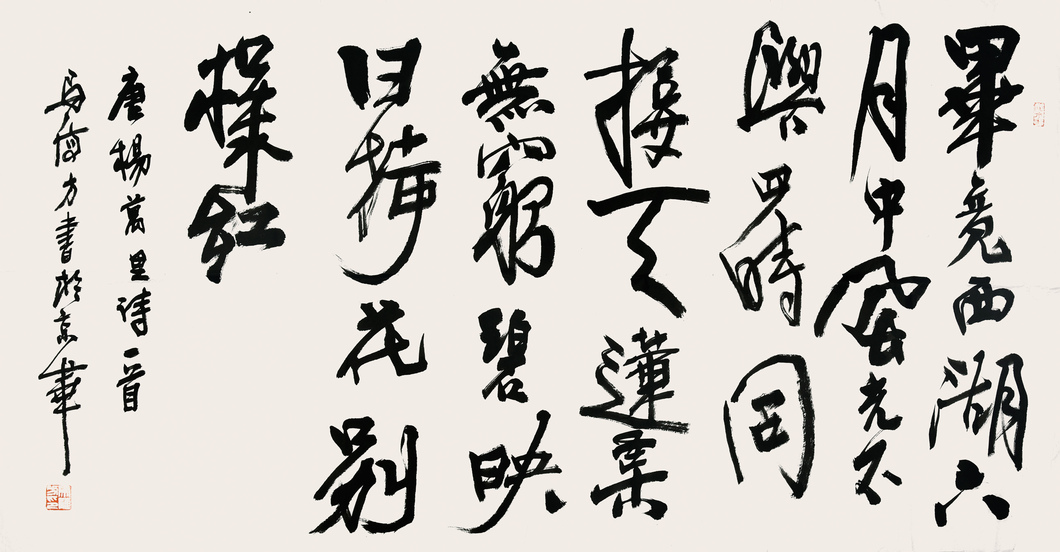 畢竟西湖六
月中風光不
與四時同
接天蓮葉
無窮碧映
日荷花別
樣紅
唐楊萬里詩一首
方書於京華